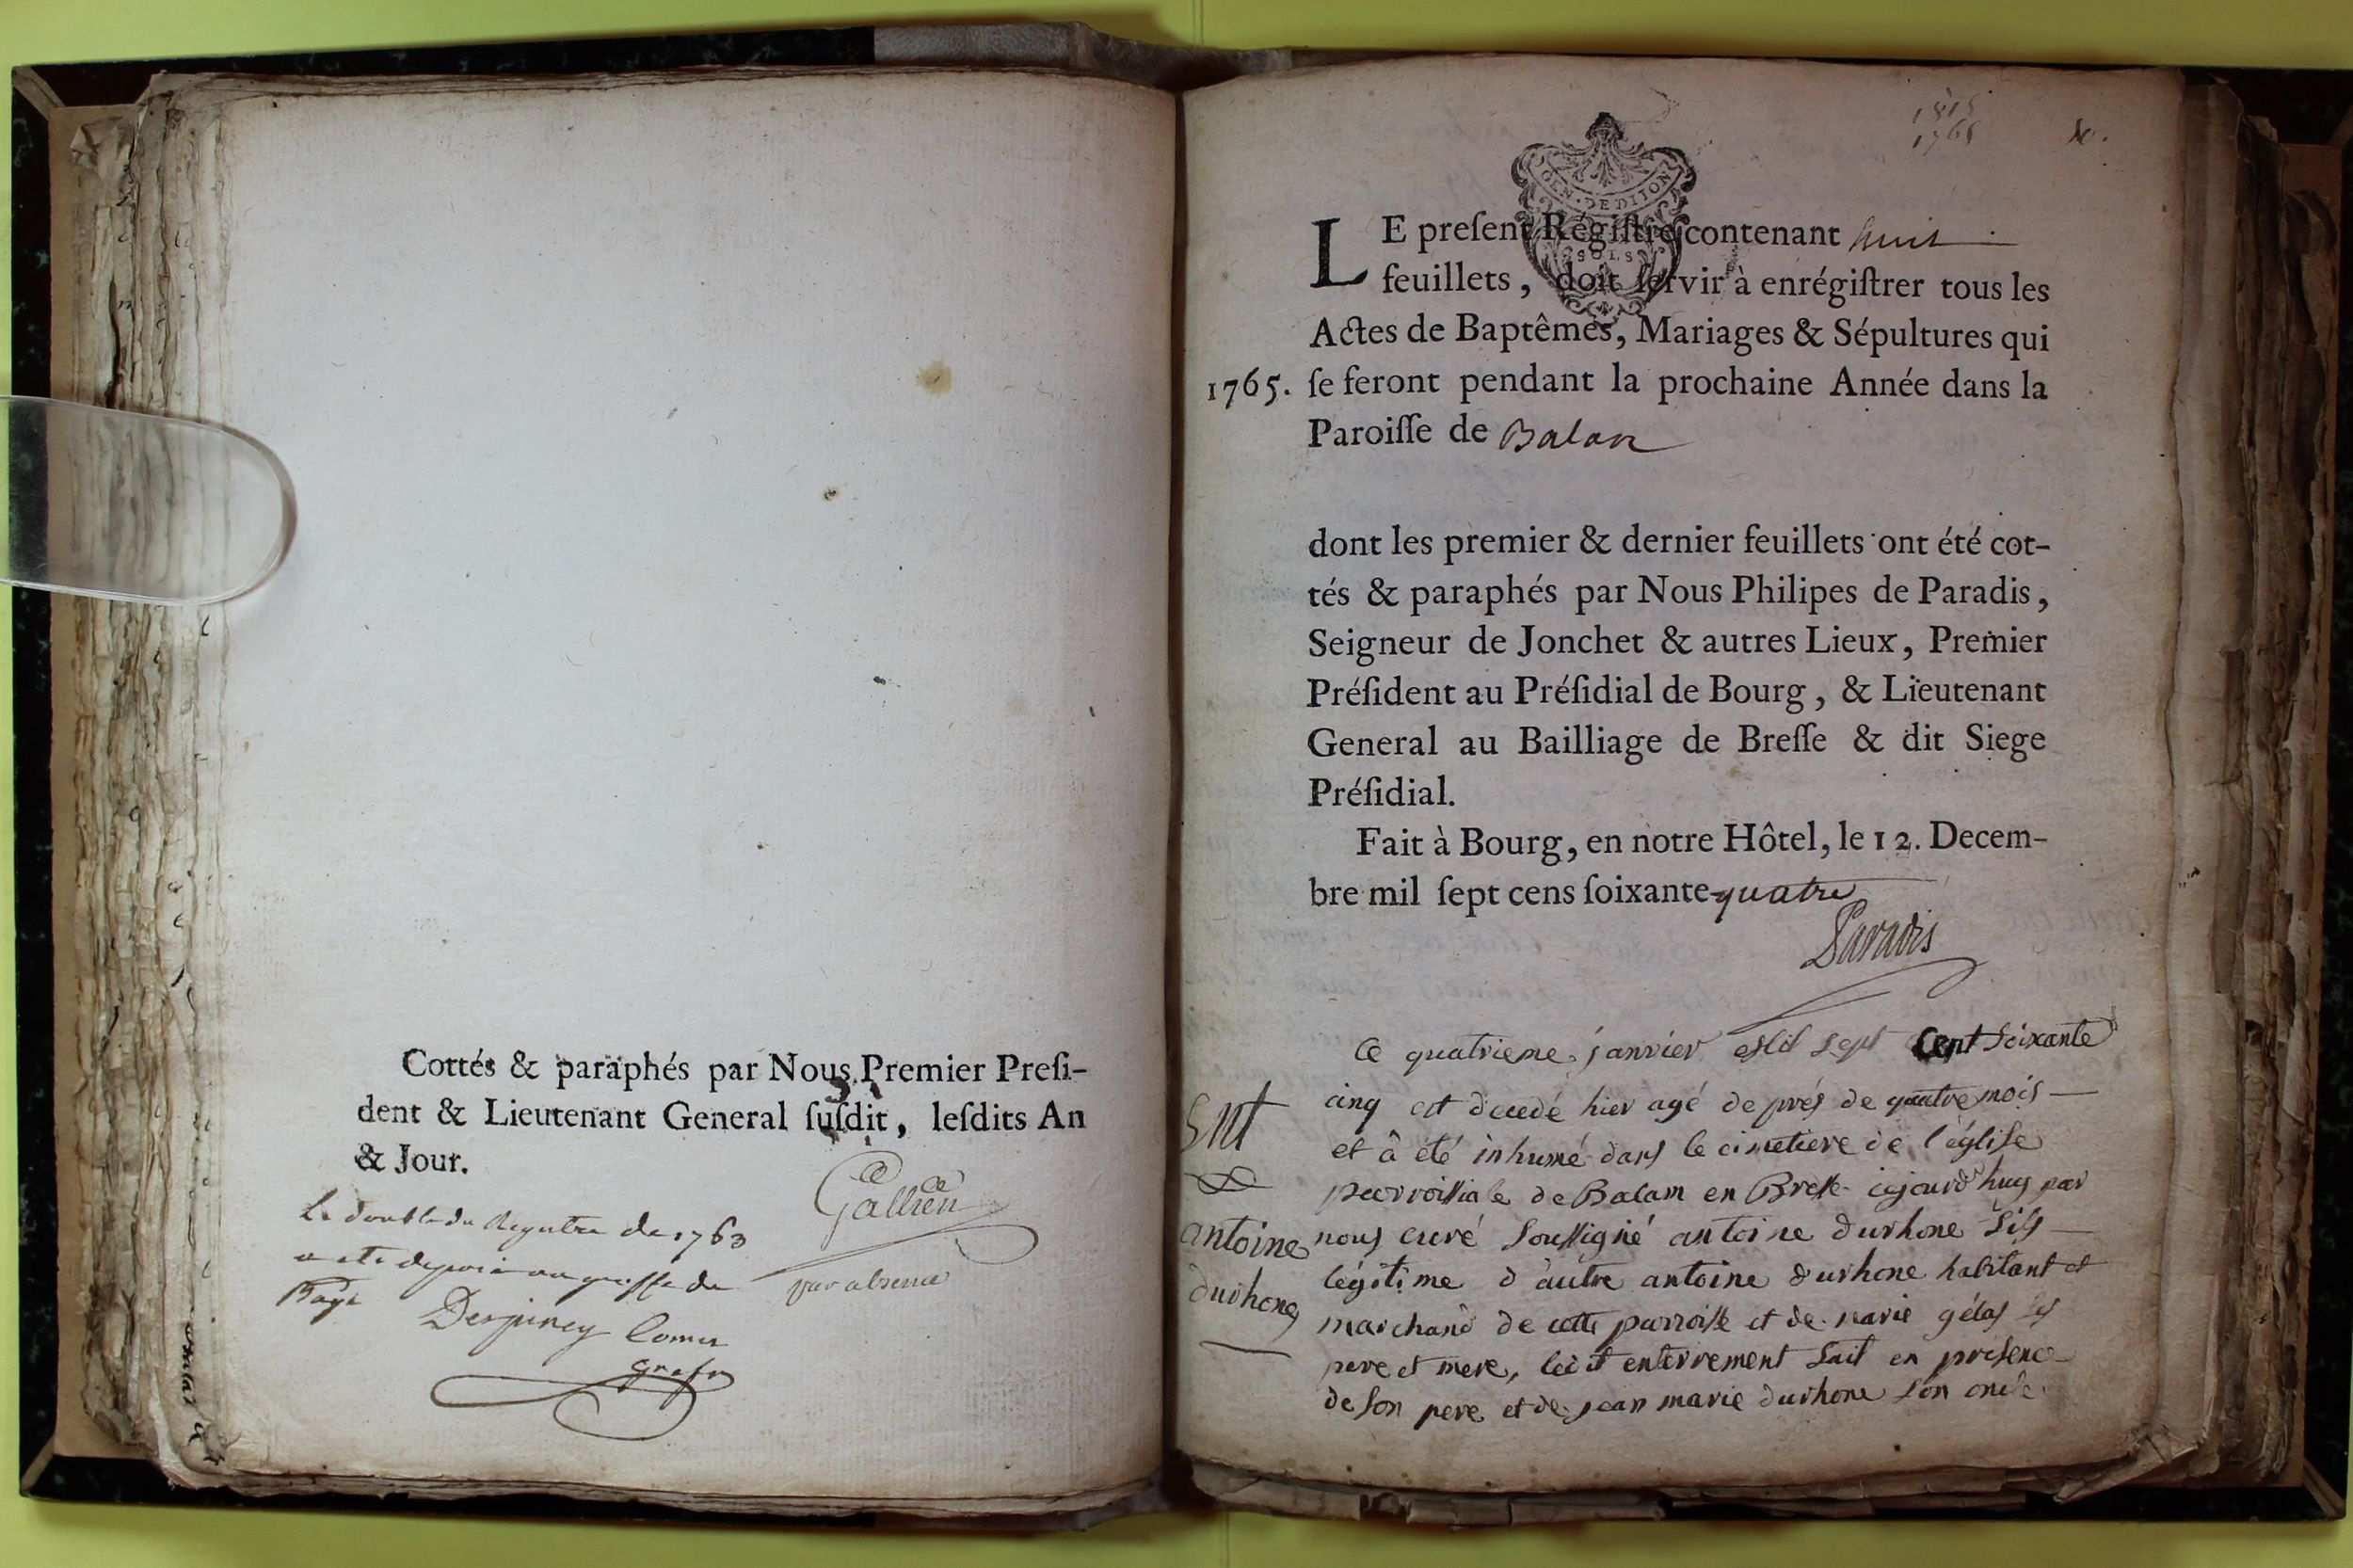 Cottés & paraphés par Nous Premier Preſi-
dent & Lieutenant General ſuſdit, leſdits An
& Jour.
Gallien
par absence
Le double du Registre de 1763
a ete deposé au greffe de
Desjiney Comis
greffr
1765
&c.
GEN. DE DIJON
SOLS
LE preſent Régiſtre contenant huit
feuillets, doit ſervir à enrégiſtrer tous les
Actes de Baptêmes, Mariages & Sépultures qui
1765. ſe feront pendant la prochaine Année dans la
Paroiſſe de Balan
dont les premier & dernier feuillets ont été cot-
tés & paraphés par Nous Philipes de Paradis,
Seigneur de Jonchet & autres Lieux, Premier
Préſident au Préſidial de Bourg, & Lieutenant
General au Bailliage de Breſſe & dit Siege
Préſidial.
Fait à Bourg, en notre Hôtel, le 12. Decem-
bre mil ſept cens ſoixante-quatre
Paradis
Ce quatrieme janvier sept Cent soixante
cinq est decedé hier agé de prés de quatre mois
et â été inhumé dans le cimetiere de l'église
parroissiale de Balam en Bresse cejourd'huy par
nous curé soussigné antoine durhone fils
légitime d'autre antoine durhone habitant et
marchand de cette parroisse et de marie gélas ses
pere et mere, ledit enterrement fait en présence
de son pere et de jean marie durhone son oncle
Snt
antoine
durhone